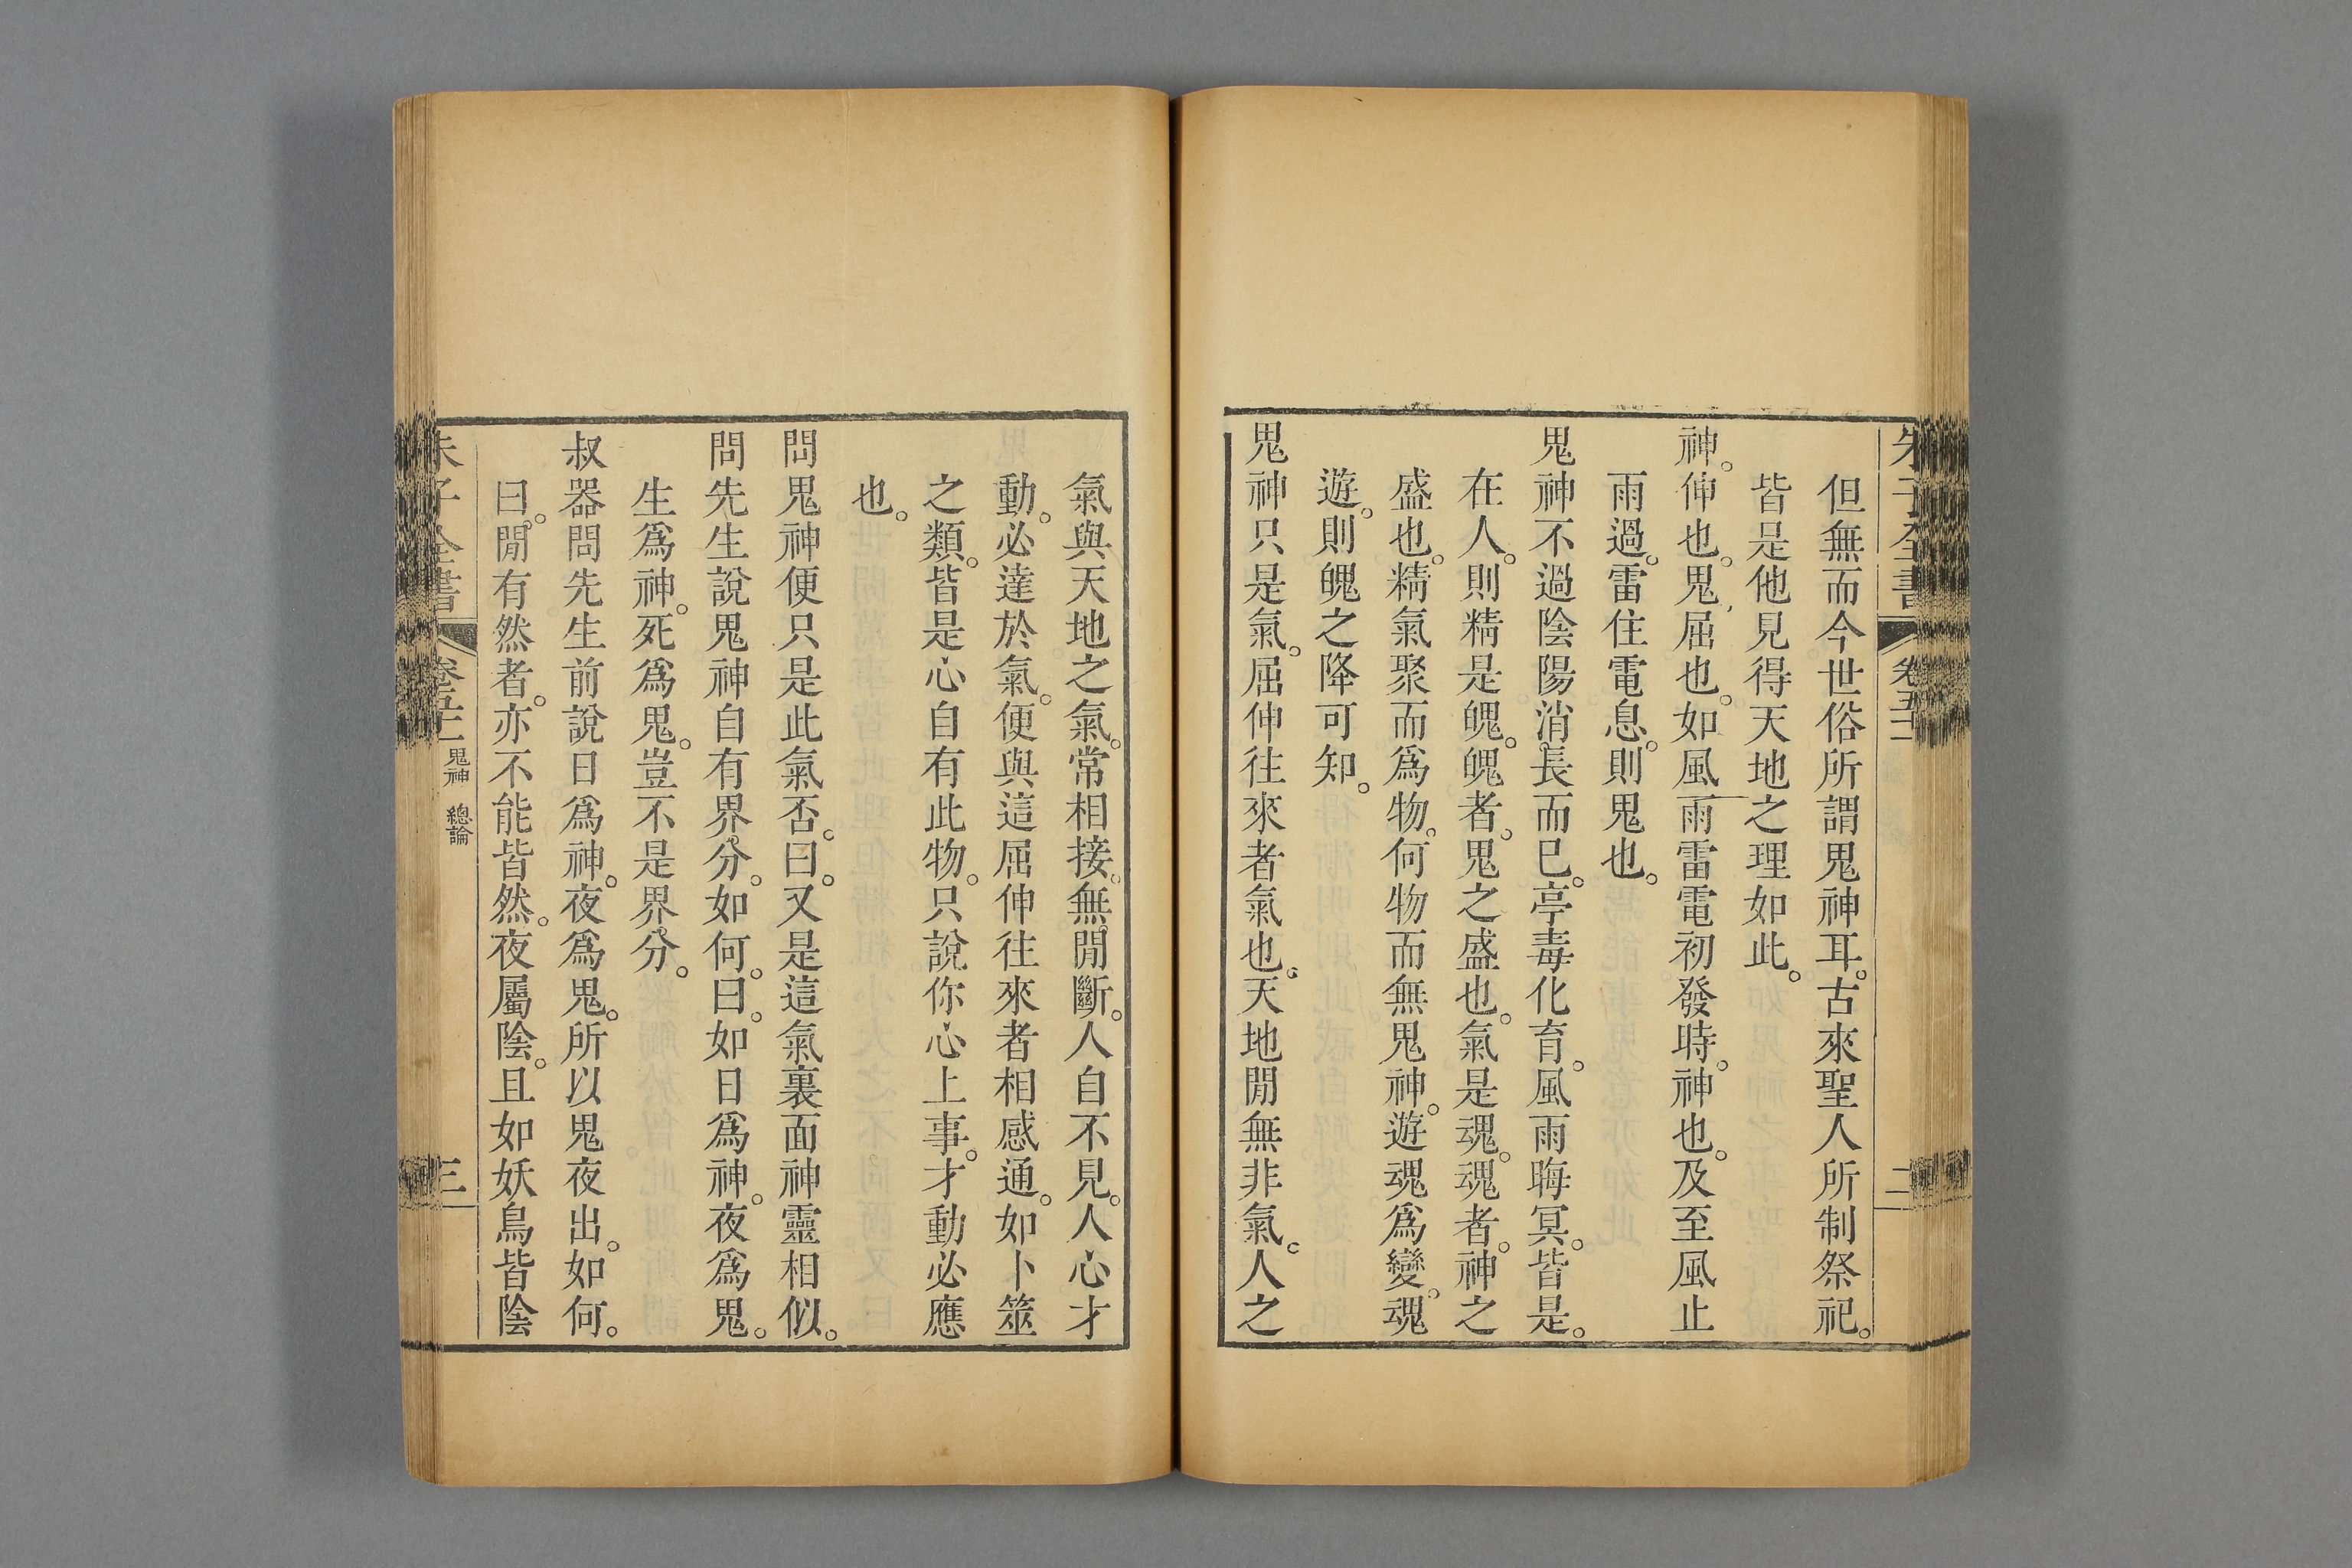 朱子全書 卷五十一 二
但無而今世俗所謂鬼神耳。古來聖人所制祭祀。
皆是他見得天地之理如此。
神。伸也。鬼。屈也。如風雨雷電初發時。神也。及至風止
雨過。雷住電息。則鬼也。
鬼神不過陰陽消長而已。亭毒化育。風雨晦冥。皆是。
在人。則精是魄。魄者。鬼之盛也。氣是魂。魂者。神之
盛也。精氣聚而爲物。何物而無鬼神。遊魂爲變。魂
遊。則魄之降可知。
鬼神只是氣。屈伸往來者氣也。天地閒無非氣。人之
氣與天地之氣。常相接。無閒斷。人自不見。人心才
動。必達於氣。便與這屈伸往來者相感通。如卜筮
之類。皆是心自有此物。只說你心上事。才動必應
也。
問鬼神便只是此氣否。曰。又是這氣裏面神靈相似。
問先生說鬼神自有界分。如何。曰。如日爲神。夜爲鬼。
生爲神。死爲鬼。豈不是界分。
叔器問先生前說日爲神。夜爲鬼。所以鬼夜出。如何。
曰。閒有然者。亦不能皆然。夜屬陰。且如妖鳥皆陰
朱子全書 卷五十一 鬼神 總論 三